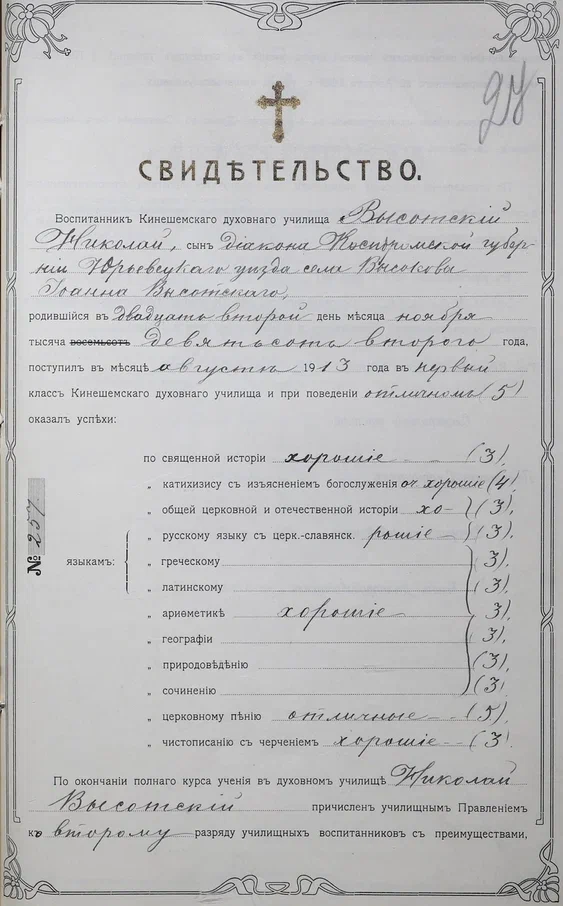 28
СВИДѢТЕЛЬСТВО.
Воспитанникъ Кинешемскаго духовнаго училища Высотскій
Николай, сынъ діакона Костромской губер-
ніи Юрьевецкаго уѣзда села Высокова
Іоанна Высотскаго,
родившійся въ двадцать второй день мѣсяца ноября
тысяча восемьсотъ девятьсотъ второго года,
поступилъ въ мѣсяцѣ августѣ 1913 года въ первый
классъ Кинешемскаго духовнаго училища и при поведеніи отличномъ (5)
оказалъ успѣхи:
по священной исторіи хорошіе (3),
„ катихизису съ изъясненіемъ богослуженія оч. хорошіе (4)
„ общей церковной и отечественной исторіи хо- (3),
языкамъ: „ русскому языку съ церк.-славянск. рошіе (3),
„ греческому 3),
„ латинскому (3),
„ ариѳметикѣ хорошіе 3),
„ географіи (3),
„ природовѣдѣнію (3),
„ сочиненію (3,
„ церковному пѣнію отличные (5),
„ чистописанію съ черченіемъ хорошіе (3,
№ 257
По окончаніи полнаго курса ученія въ духовномъ училищѣ Николай
Высотскій причисленъ училищнымъ Правленіемъ
къ второму разряду училищныхъ воспитанниковъ съ преимуществами,